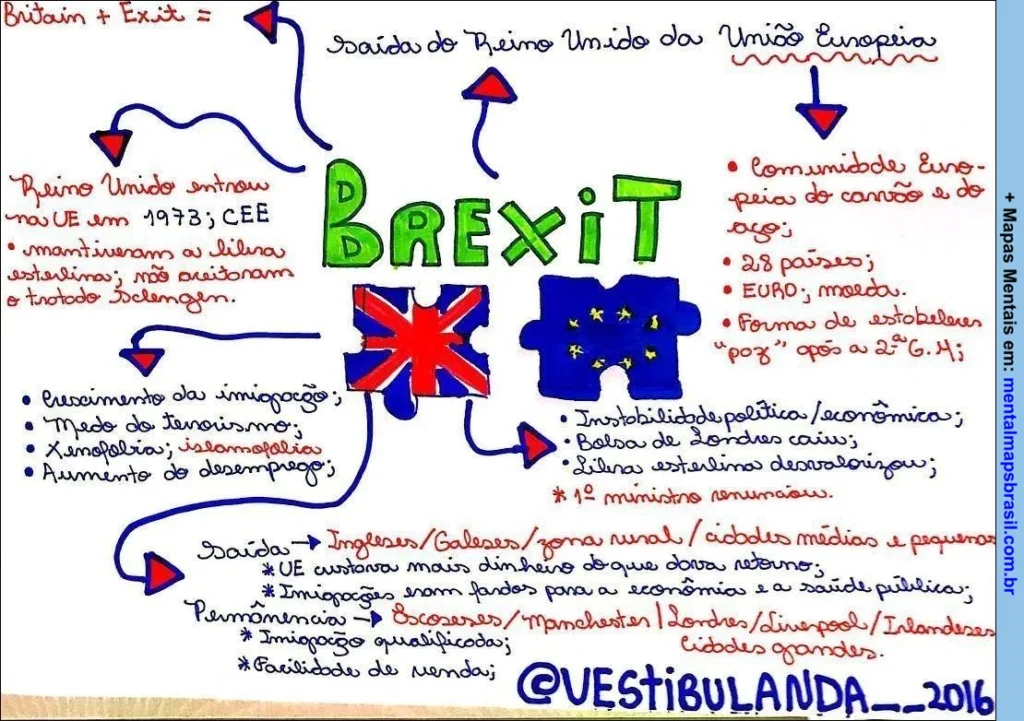 Britain + Exit =
Saída do Reino Unido da União Europeia
• Comunidade Euro-
peia do carvão e do
aço;
• 28 países;
• EURO; moeda.
• Forma de estabelecer
"paz" após a 2ª G.M;
Reino Unido entrou
na UE em 1973; CEE
• mantiveram a libra
esterlina; não aceitaram
o tratado Sclengen.
BREXiT
• Crescimento da imigração;
• Medo do terrorismo;
• Xenofobia; islamofobia
• Aumento do desemprego;
• Instabilidade política/econômica;
• Bolsa de Londres caiu;
• Libra esterlina desvalorizou;
* 1º ministro renunciou.
Saída → Ingleses/Galeses/zona rural/cidades médias e pequenas
* UE custava mais dinheiro do que dava retorno;
* Imigrações eram fardos para a econômia e a saúde pública;
Permânencia → Escoseses/Manchester/Londres/Liverpool/Irlandeses
Cidades grandes.
* Imigração qualificada;
* Facilidade de venda;
@VESTiBULANDA__2016
+ Mapas Mentais em: mentalmapsbrasil.com.br